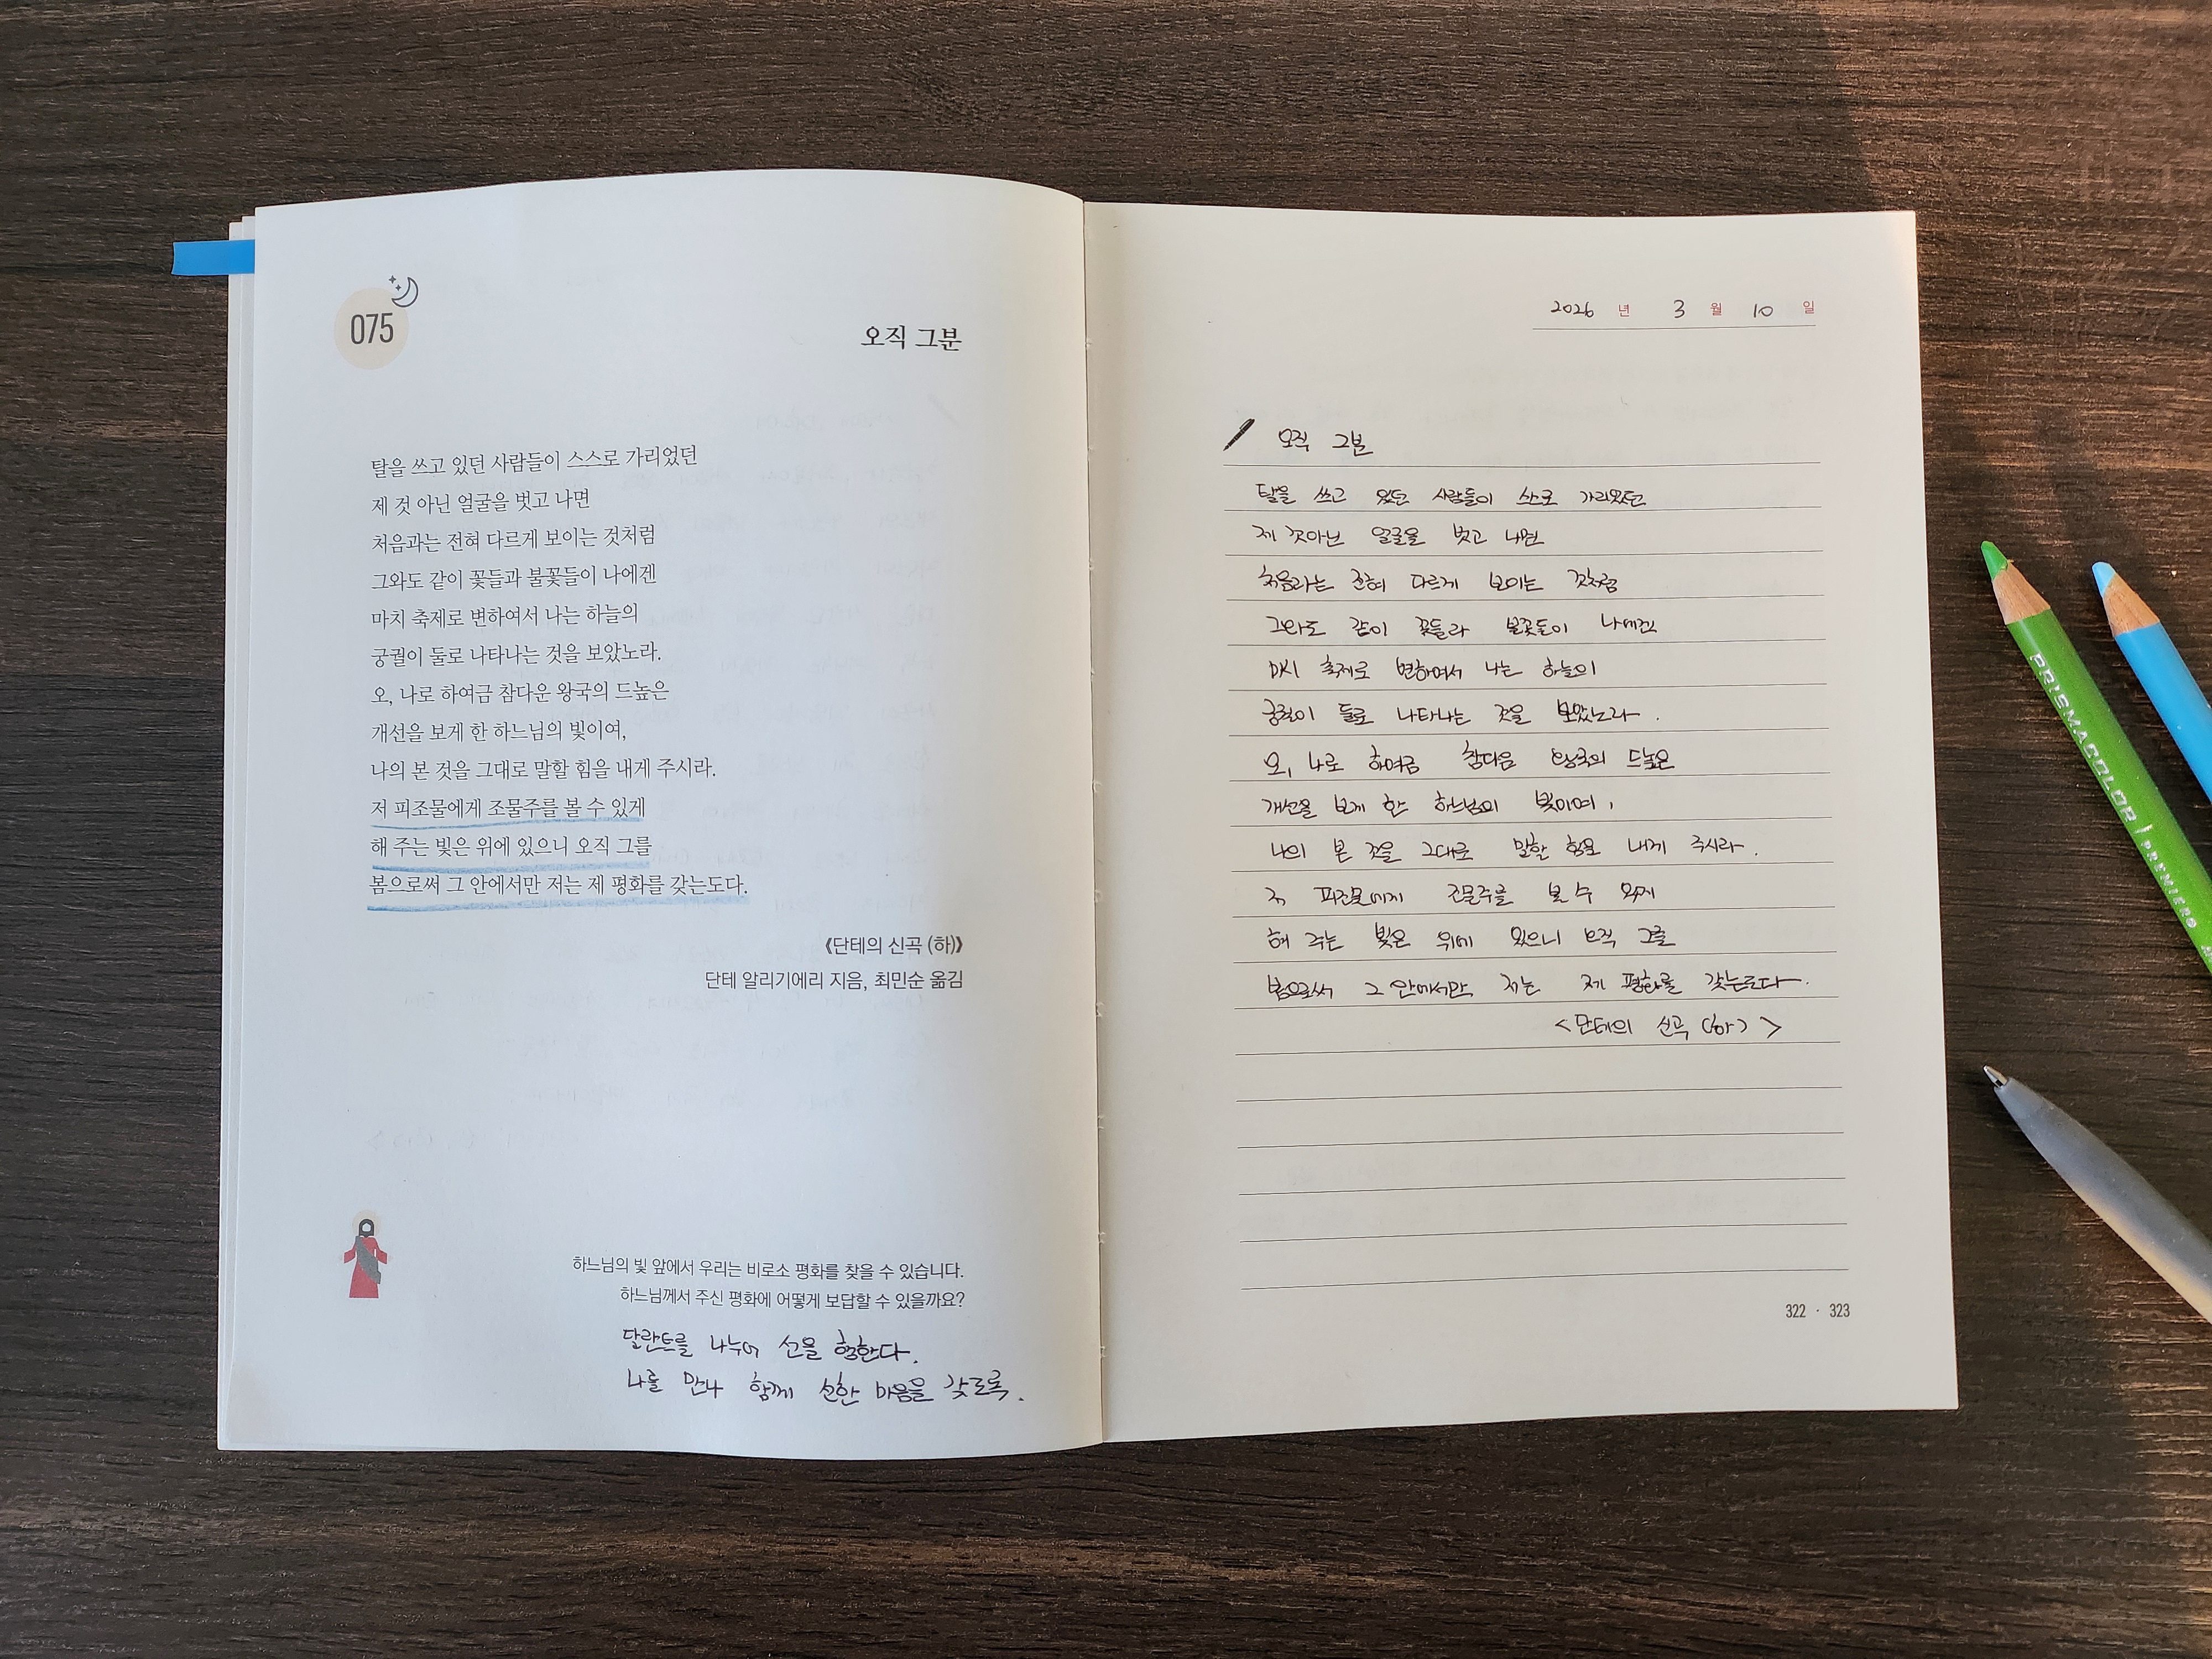 075
오직 그분
탈을 쓰고 있던 사람들이 스스로 가리었던
제 것 아닌 얼굴을 벗고 나면
처음과는 전혀 다르게 보이는 것처럼
그와도 같이 꽃들과 불꽃들이 나에겐
마치 축제로 변하여서 나는 하늘의
궁궐이 둘로 나타나는 것을 보았노라.
오, 나로 하여금 참다운 왕국의 드높은
개선을 보게 한 하느님의 빛이여,
나의 본 것을 그대로 말할 힘을 내게 주시라.
저 피조물에게 조물주를 볼 수 있게
해 주는 빛은 위에 있으니 오직 그를
봄으로써 그 안에서만 저는 제 평화를 갖는도다.
《단테의 신곡 (하)》
단테 알리기에리 지음, 최민순 옮김
하느님의 빛 앞에서 우리는 비로소 평화를 찾을 수 있습니다.
하느님께서 주신 평화에 어떻게 보답할 수 있을까요?
달란트를 나누어 선을 행한다.
나를 만나 함께 선한 마음을 갖도록.
2026 년 3 월 10 일
오직 그분
탈을 쓰고 있던 사람들이 스스로 가리었던
제 것아닌 얼굴을 벗고 나면
처음과는 전혀 다르게 보이는 것처럼
그와도 같이 꽃들과 불꽃들이 나에겐
마치 축제로 변하여서 나는 하늘의
궁궐이 둘로 나타나는 것을 보았노라.
오, 나로 하여금 참다음 왕국의 드높은
개선을 보게 한 하느님의 빛이여,
나의 본 것을 그대로 말할 힘을 내게 주시라.
저 피조물에게 조물주를 볼 수 있게
해 주는 빛은 위에 있으니 오직 그를
봄으로써 그 안에서만 저는 제 평화를 갖는도다.
<단테의 신곡 (하)>
322 · 323
PRISMACOLOR | PREMIER